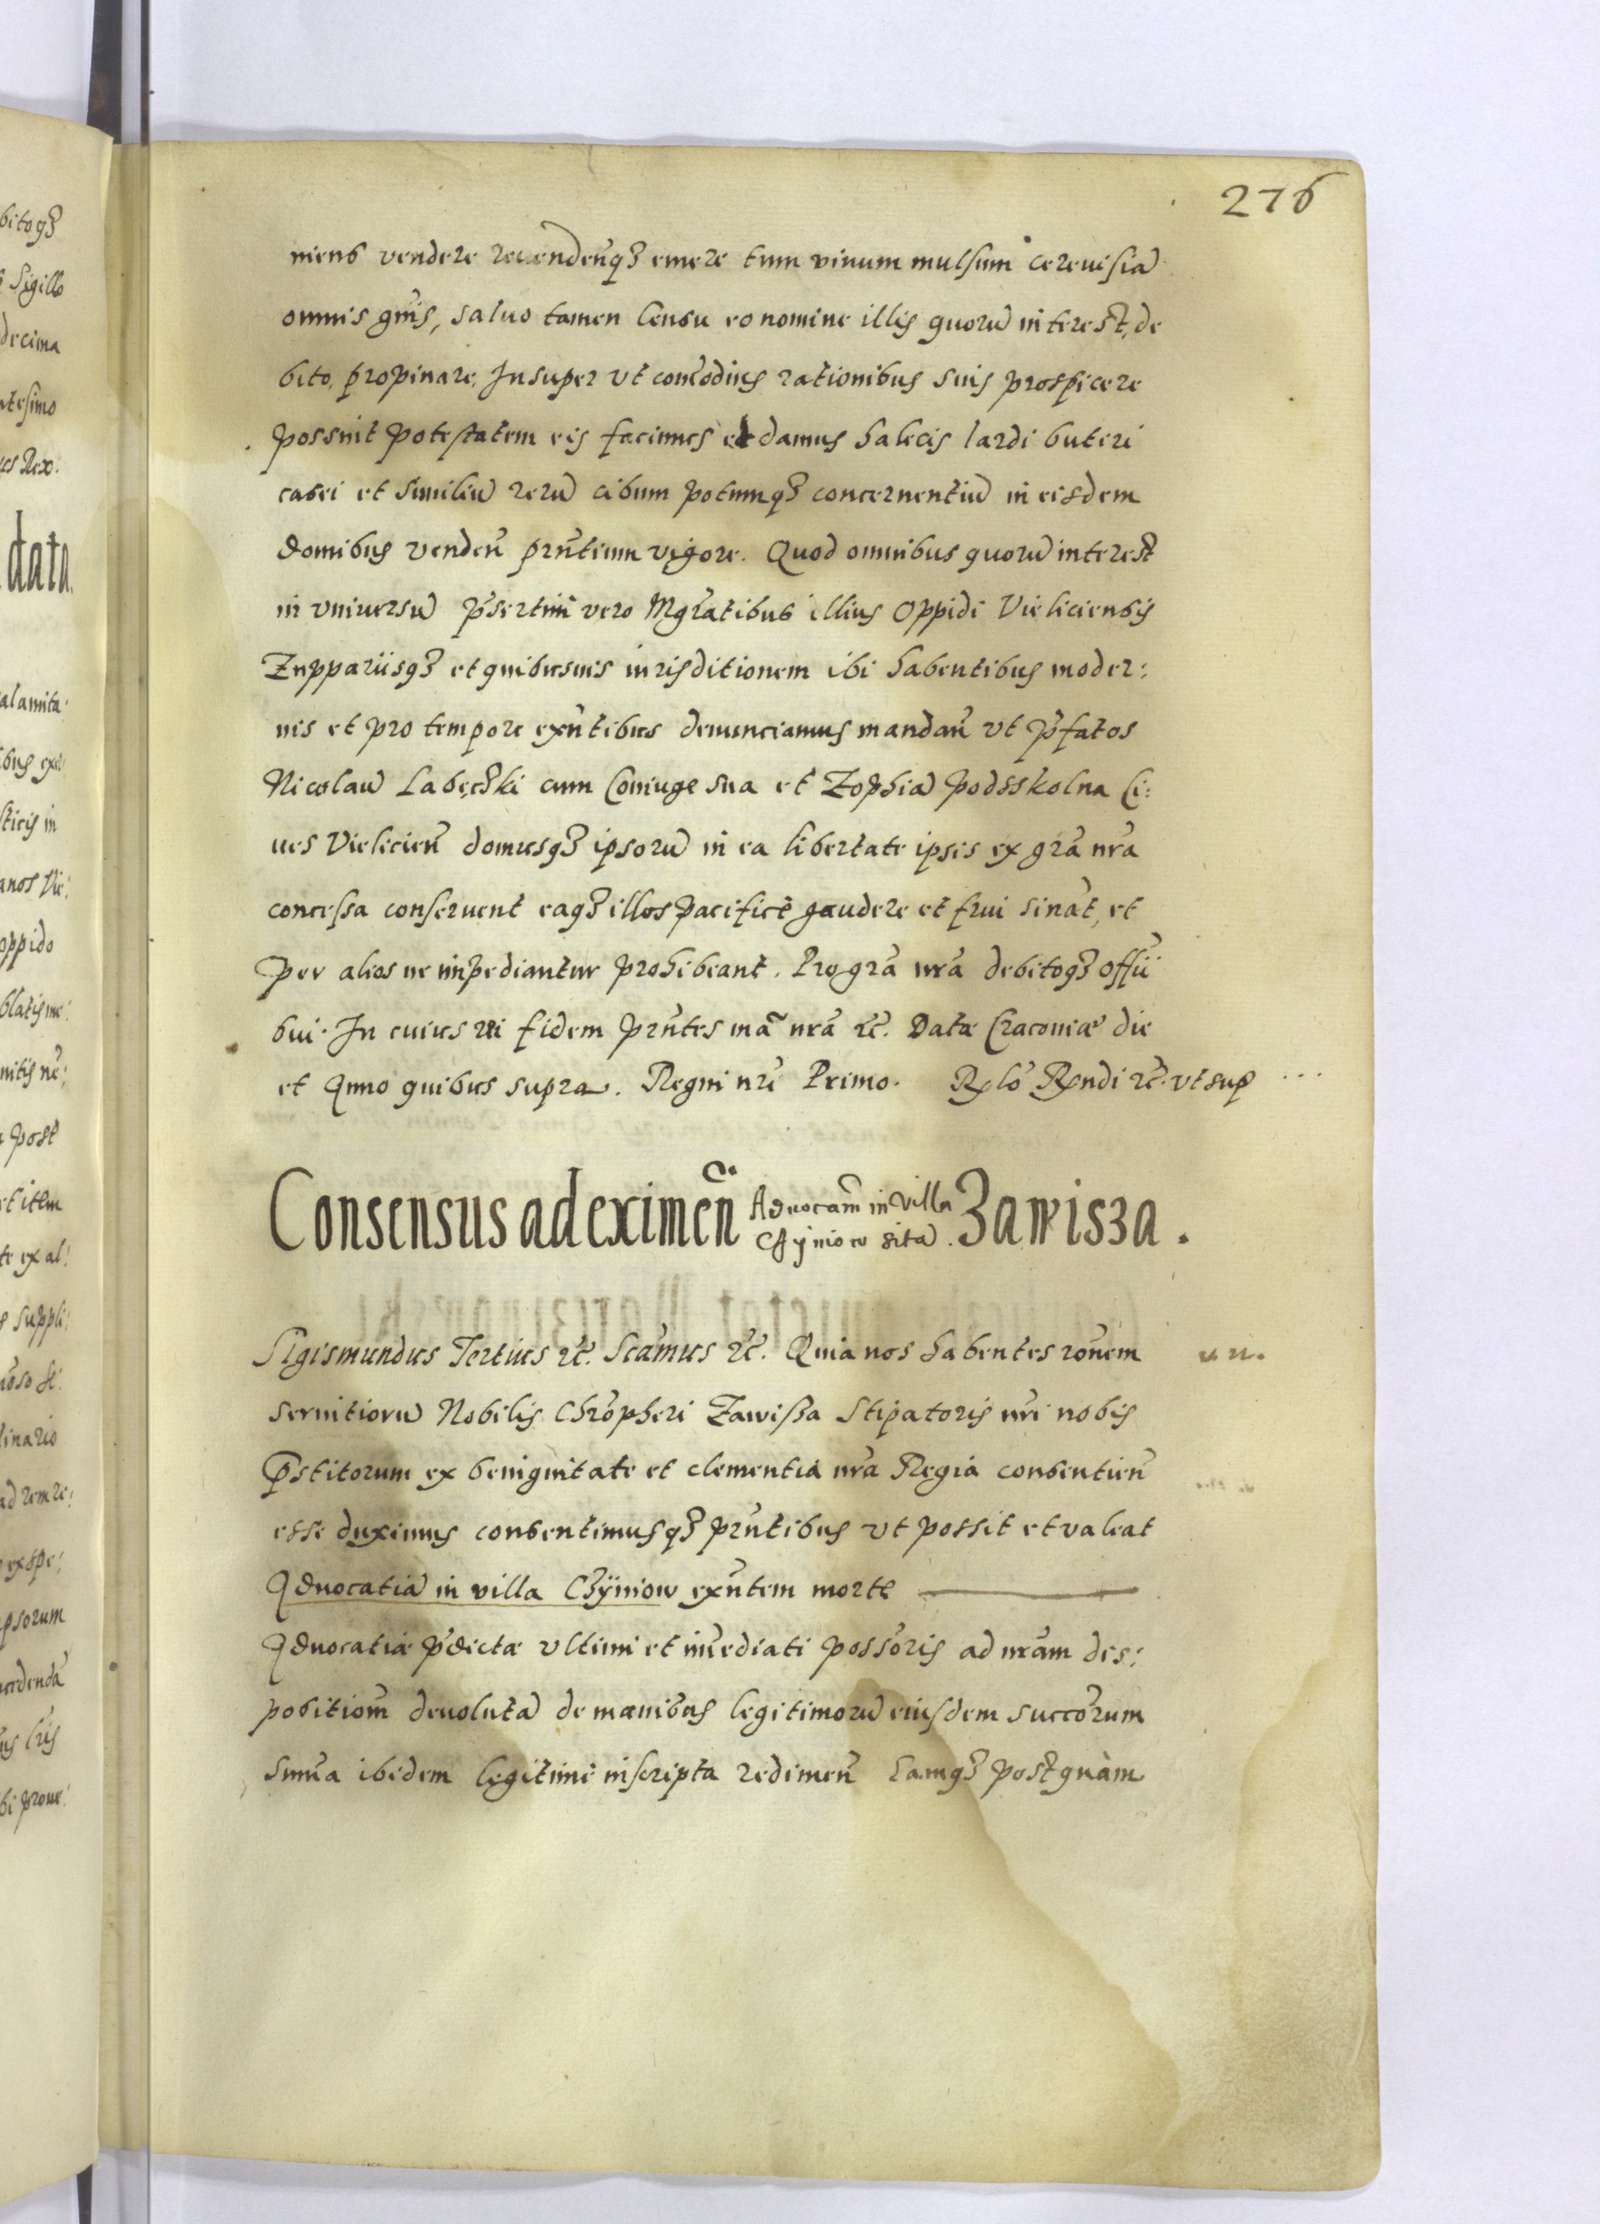 276
niens vendere revendenq3 emere tum vinum mulsum cerevisiã
omnis gñis, salvo tamen Censu eo nomine illis quorũ interest, de
bito, propinare, Insuper ut com̃odius rationibus suis prospicere
possint potestatem eis facimus et damus halecis lardi buteri
casei et similiũ rerũ cibum potumq3 concernentiũ in eisdem
domibus venden̄ prñtium vigore. Quod omnibus quorũ interest
in universũ p̃sertim vero Mgr̃atibus illius Oppidi Vieliciensis
Zuppariisq3 et quibusvis iurisditionem ibi habentibus moder:
nis et pro tempore exñtibus denunciamus mandan̄ ut p̃fatos
Nicolaũ Labęcki cum Coniuge sua et Zophiã Podsskolna Ci:
ves Vielicien̄ domusq3 ipsorũ in ea libertate ipsis ex gr̃a nr̃a
concessa conservent eaq3 illos pacificè gaudere et frui sinãt, et
per alios ne impediantur prohibeant. Pro gr̃a nr̃a debitoq3 offii
bui. In cuius rei fidem prñtes mañ nr̃a etc̃. Datæ Cracoviæ die
et Anno quibus supra. Regni nr̃i Primo. Relõ Rñdi etc̃. ut sup
Consensus ad eximen̄ Advocam̃ in villa
Chyniow sitã. Zawisza.
Sigismundus Tertius etc̃. Scãmus etc̃. Quia nos habentes rõnem
servitiorũ Nobilis Chrõpheri Zawissa Stipatoris nr̃i nobis
p̃stitorum ex benignitate et clementia nr̃a Regia consentien̄
esse duximus consentimusq3 prñtibus ut possit et valeat
Advocatiã in villa Chÿniow exñtem morte
Advocatiæ p̃dictæ ultimi et im̃ediati possõris ad nr̃am dis:
positiom̃ devolutã de manibus legitimorũ eiusdem succõrum
sum̃a ibidem legitimè inscripta redimen̄ Eamq3 postquàm